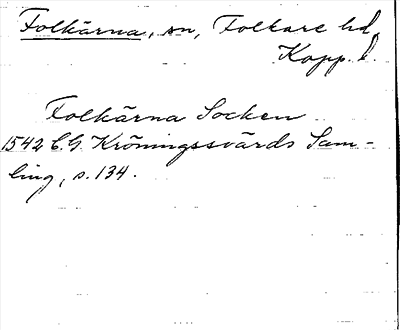 Folkärna, sn, Folkare hd,
Kopp. l.
Folkärna Socken
1542 C.G. Kröningssvärds Sam-
ling, s. 134.